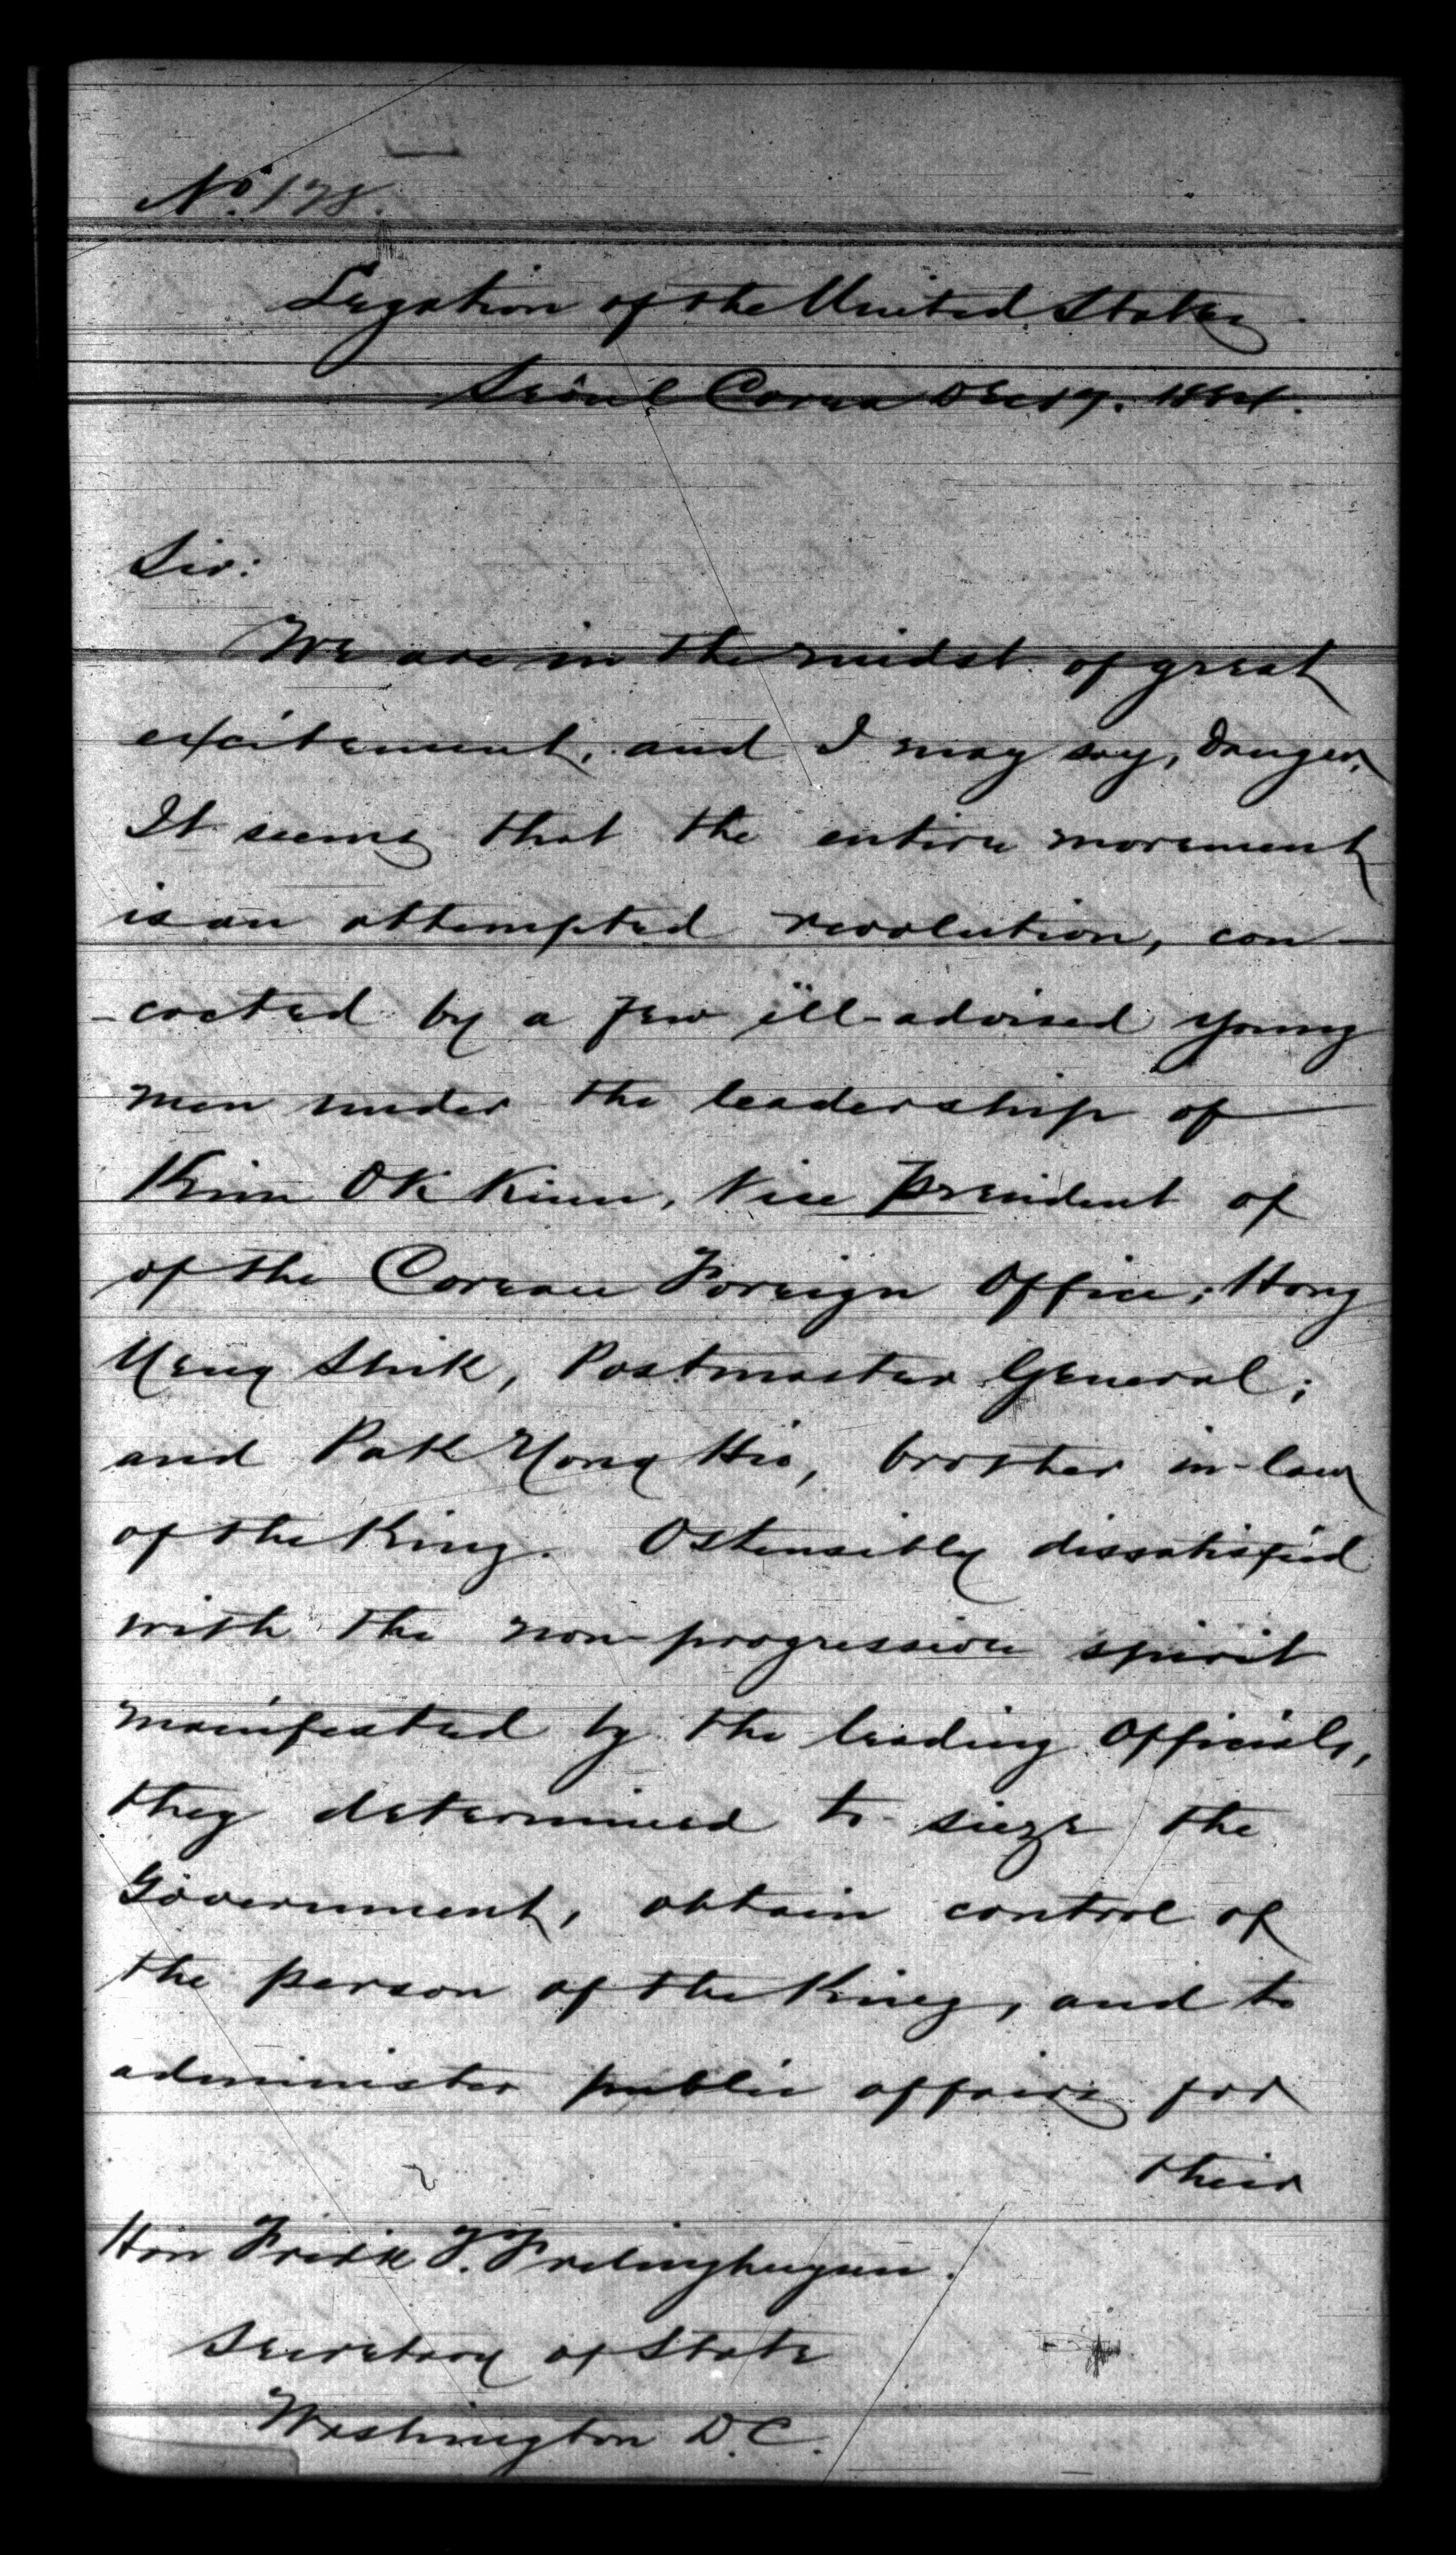 No. 178.
Legation of the United States.
Seoul Corea Dec 17. 1884.
Sir:
We are in the midst of great
excitement, and I may say, danger.
It seems that the entire movement
is an attempted revolution, con-
-cocted by a few ill-advised young
men under the leadership of
Kim Ok Kiun, Vice President of
of the Corean Foreign Office; Hong
Yeng Shik, Postmaster General;
and Pak Yong Hio, brother in-law
of the King. Ostensibly dissatisfied
with the non-progressive spirit
manifested by the leading Officials,
they determined to sieze the
Government, obtain control of
the person of the King, and to
administer public affairs for
their
Hon Fredk T. Frelinghuysen.
Secretary of State
Washington D.C.